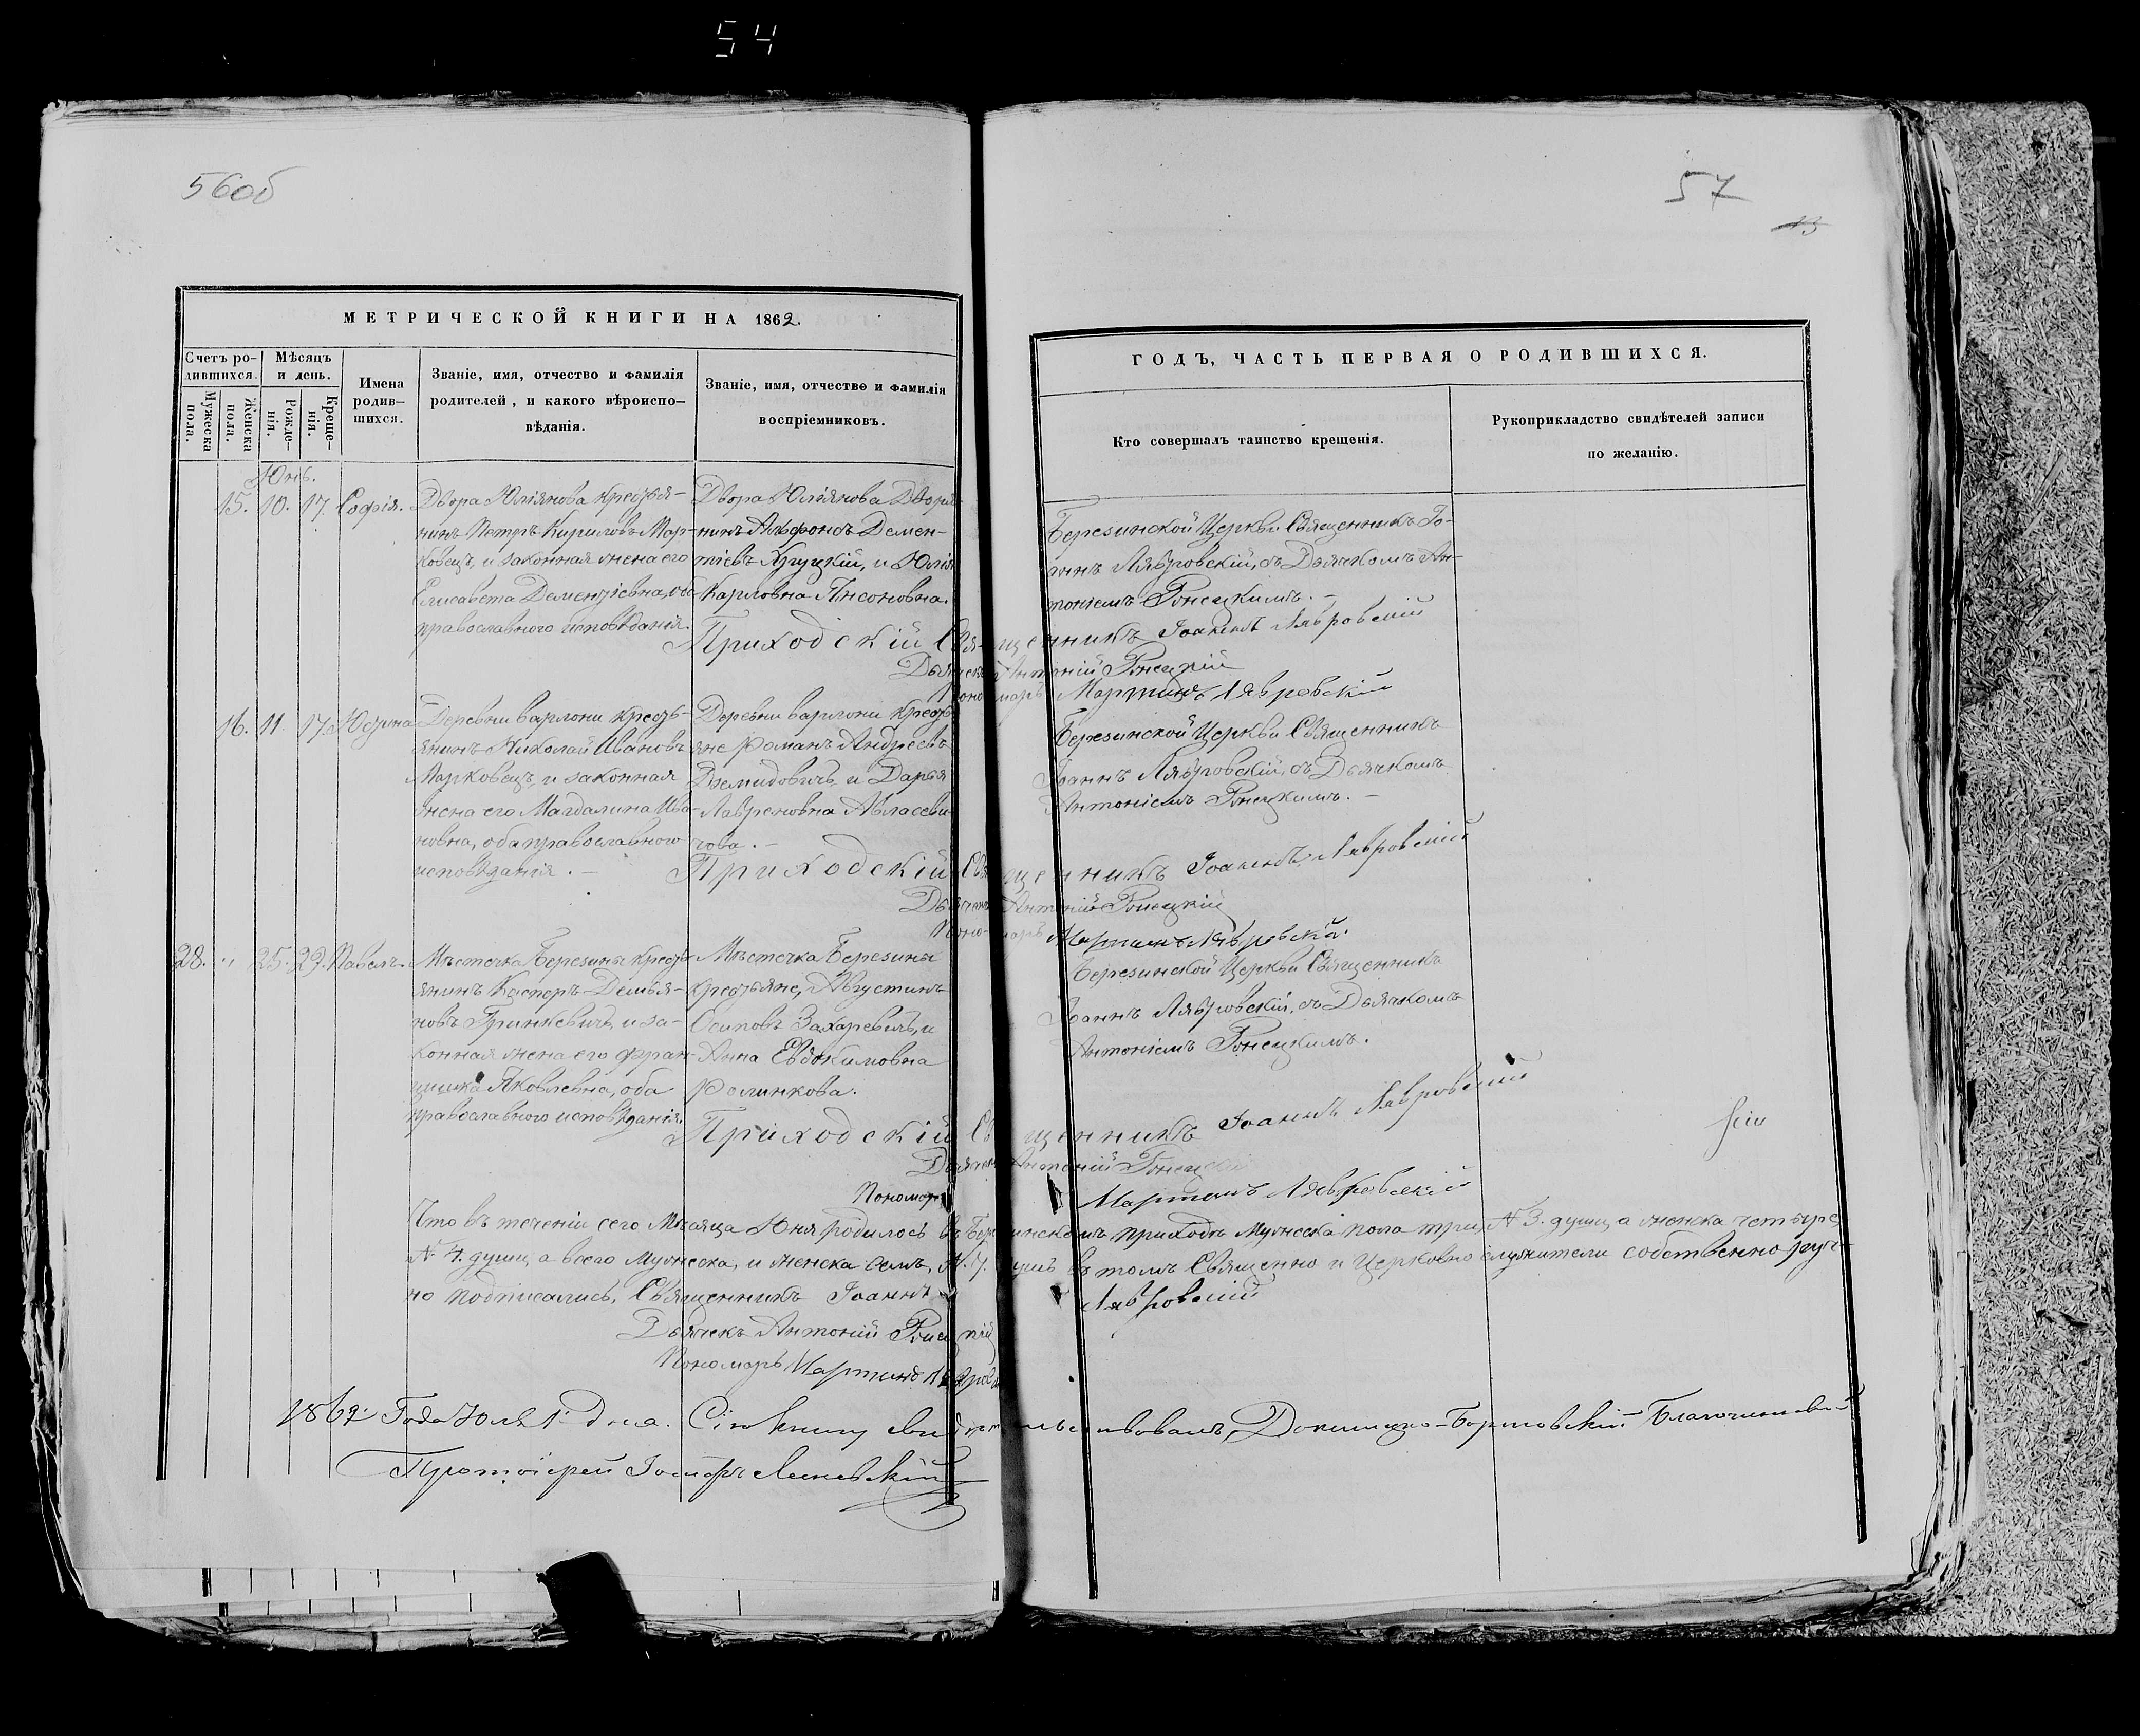 54
56об
57
13
МЕТРИЧЕСКОЙ КНИГИ НА 1862.
Счетъ ро-
дившихся.
Мѣсяцъ
и день.
Имена
родив-
шихся.
Званіе, имя, отчество и фамилія
родителей, и какого вѣроиспо-
вѣданія.
Званіе, имя, отчество и фамилія
воспріемниковъ.
Мужеска
пола.
Женска
пола.
Рожде-
нія.
Креще-
нія.
ГОДЪ, ЧАСТЬ ПЕРВАЯ О РОДИВШИХСЯ.
Кто совершалъ таинство крещенія.
Рукоприкладство свидѣтелей записи
по желанію.
Юнь.
15. 10. 17. Софія.
Двора Юліянова кресть-
нинъ Петръ Кириловъ Мар-
ковецъ, и законная жена его
Елисавета Дементіевна, оба
православного исповѣданія.
Двора Юліянова Дворя-
нинъ Альфонсъ Демен-
тіевъ Хруцкій, и Юлія
Карловна Янсоновна.
Березинской Церкви Священникъ Іо-
аннъ Лявровскій, съ Дьячкомъ Ан-
тоніемъ Гонецкимъ. –
Приходскій Священникъ Іоаннъ Лявровскій
Дьячекъ Антоній Гонецкій
Пономарь Мартинъ Лявровскій
16. 11. 17. Юстина
Деревни Варлони кресть-
янинъ Николай Ивановъ
Марковецъ, и законная
жена его Магдалина Ива-
новна, оба православного
исповѣданія. –
Деревни Варлони кресть-
яне Романъ Андреевъ
Демидовичъ, и Дарья
Лавреновна Абласеви-
чова. –
Березинской Церкви Священникъ
Іоаннъ Лявровскій, съ Дьячкомъ
Антоніемъ Гонецкимъ. –
Приходскій Священникъ Іоаннъ Лявровскій
Дьячекъ Антоній Гонецкій
Пономарь Мартинъ Лявровскій.
28. „ 25. 29. Павелъ.
Мѣстечка Березины кресть-
янинъ Касперъ Демья-
новъ Гринкевичъ, и за-
конная жена его Фран-
цишка Яковлевна, оба
православного исповѣданія.
Мѣстечка Березины
крестьяне, Августинъ
Осиповъ Захаревичъ, и
Анна Евдокимовна
Ролинкова.
Березинской Церкви Священникъ
Іоаннъ Лявровскій, съ Дьячкомъ
Антоніемъ Гонецкимъ.
Приходскій Священникъ Іоаннъ Лявровскій
Дьячекъ Антоній Гонецкій
Пономарь Мартинъ Лявровскій
Что въ теченіи сего Мѣсяца Юня родилось въ Березинскомъ приходѣ Мужеска пола три, № 3. души, а женска четыре,
№ 4. души, а всего Мужеска, и женска семь, № 7. душъ въ томъ Священно и Церковно служители собственно руч-
но подписались, Священникъ Іоаннъ Лявровскій
Дьячекъ Антоній Гонецкій
Пономарь Мартинъ Лявровскій
1862. Года Юля 1. дня. Сію книгу свидѣтельствовалъ, Докшицко-Борисовскій Благочинный
Протоіерей